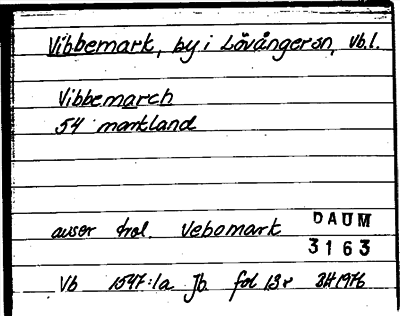 Vibbemark, by i Lövångersn, Vb.l.
Vibbemarch
54 markland
avser trol. Vebomark
DAUM
3163
Vb 1547:1a Jb fol 13r BH 1976